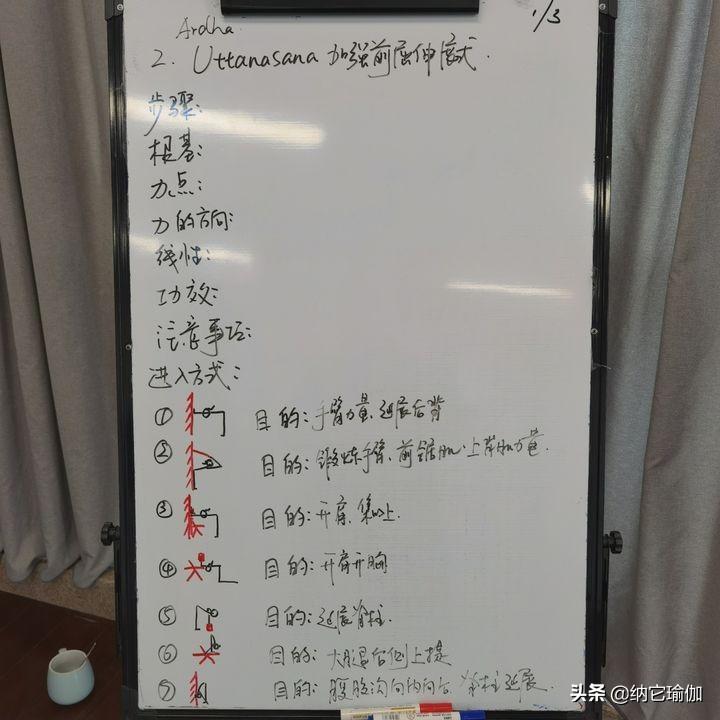 1/3
Ardha.
2. Uttanasana 加强前屈伸展式.
步骤:
根基:
力点:
力的方向:
线性:
功效:
注意事项:
进入方式:
① 目的:手臂力量.延展后背
② 目的:锻炼手臂.前锯肌.上背肌力量.
③ 目的:开肩.
④ 目的:开肩开胸
⑤ 目的:延展脊柱.
⑥ 目的:大腿后侧上提
⑦ 目的:腹股沟向内向后 脊柱延展.
头条 @纳它瑜伽